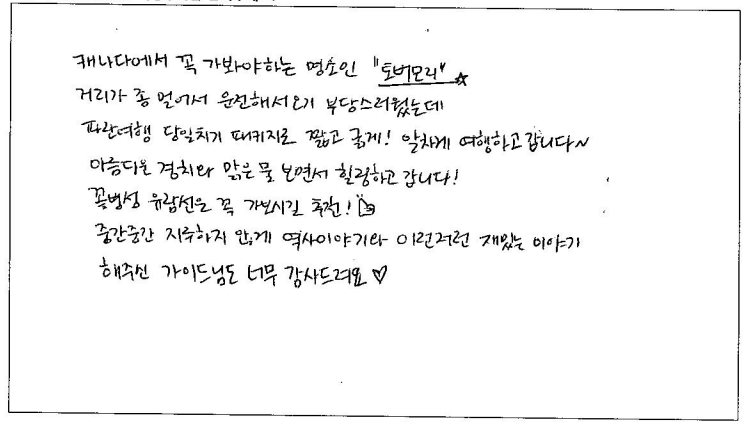 캐나다에서 꼭 가봐야하는 명소인 "토버모리"☆
거리가 좀 멀어서 운전해서오기 부담스러웠는데
파란여행 당일치기 패키지로 짧고 굵게! 알차게 여행하고갑니다~
아름다운 경치와 맑은 물 보면서 힐링하고 갑니다!
꽃병섬 유람선은 꼭 가보시길 추천!
중간중간 지루하지 않게 역사이야기와 이런저런 재밌는 이야기
해주신 가이드님도 너무 감사드려요♡